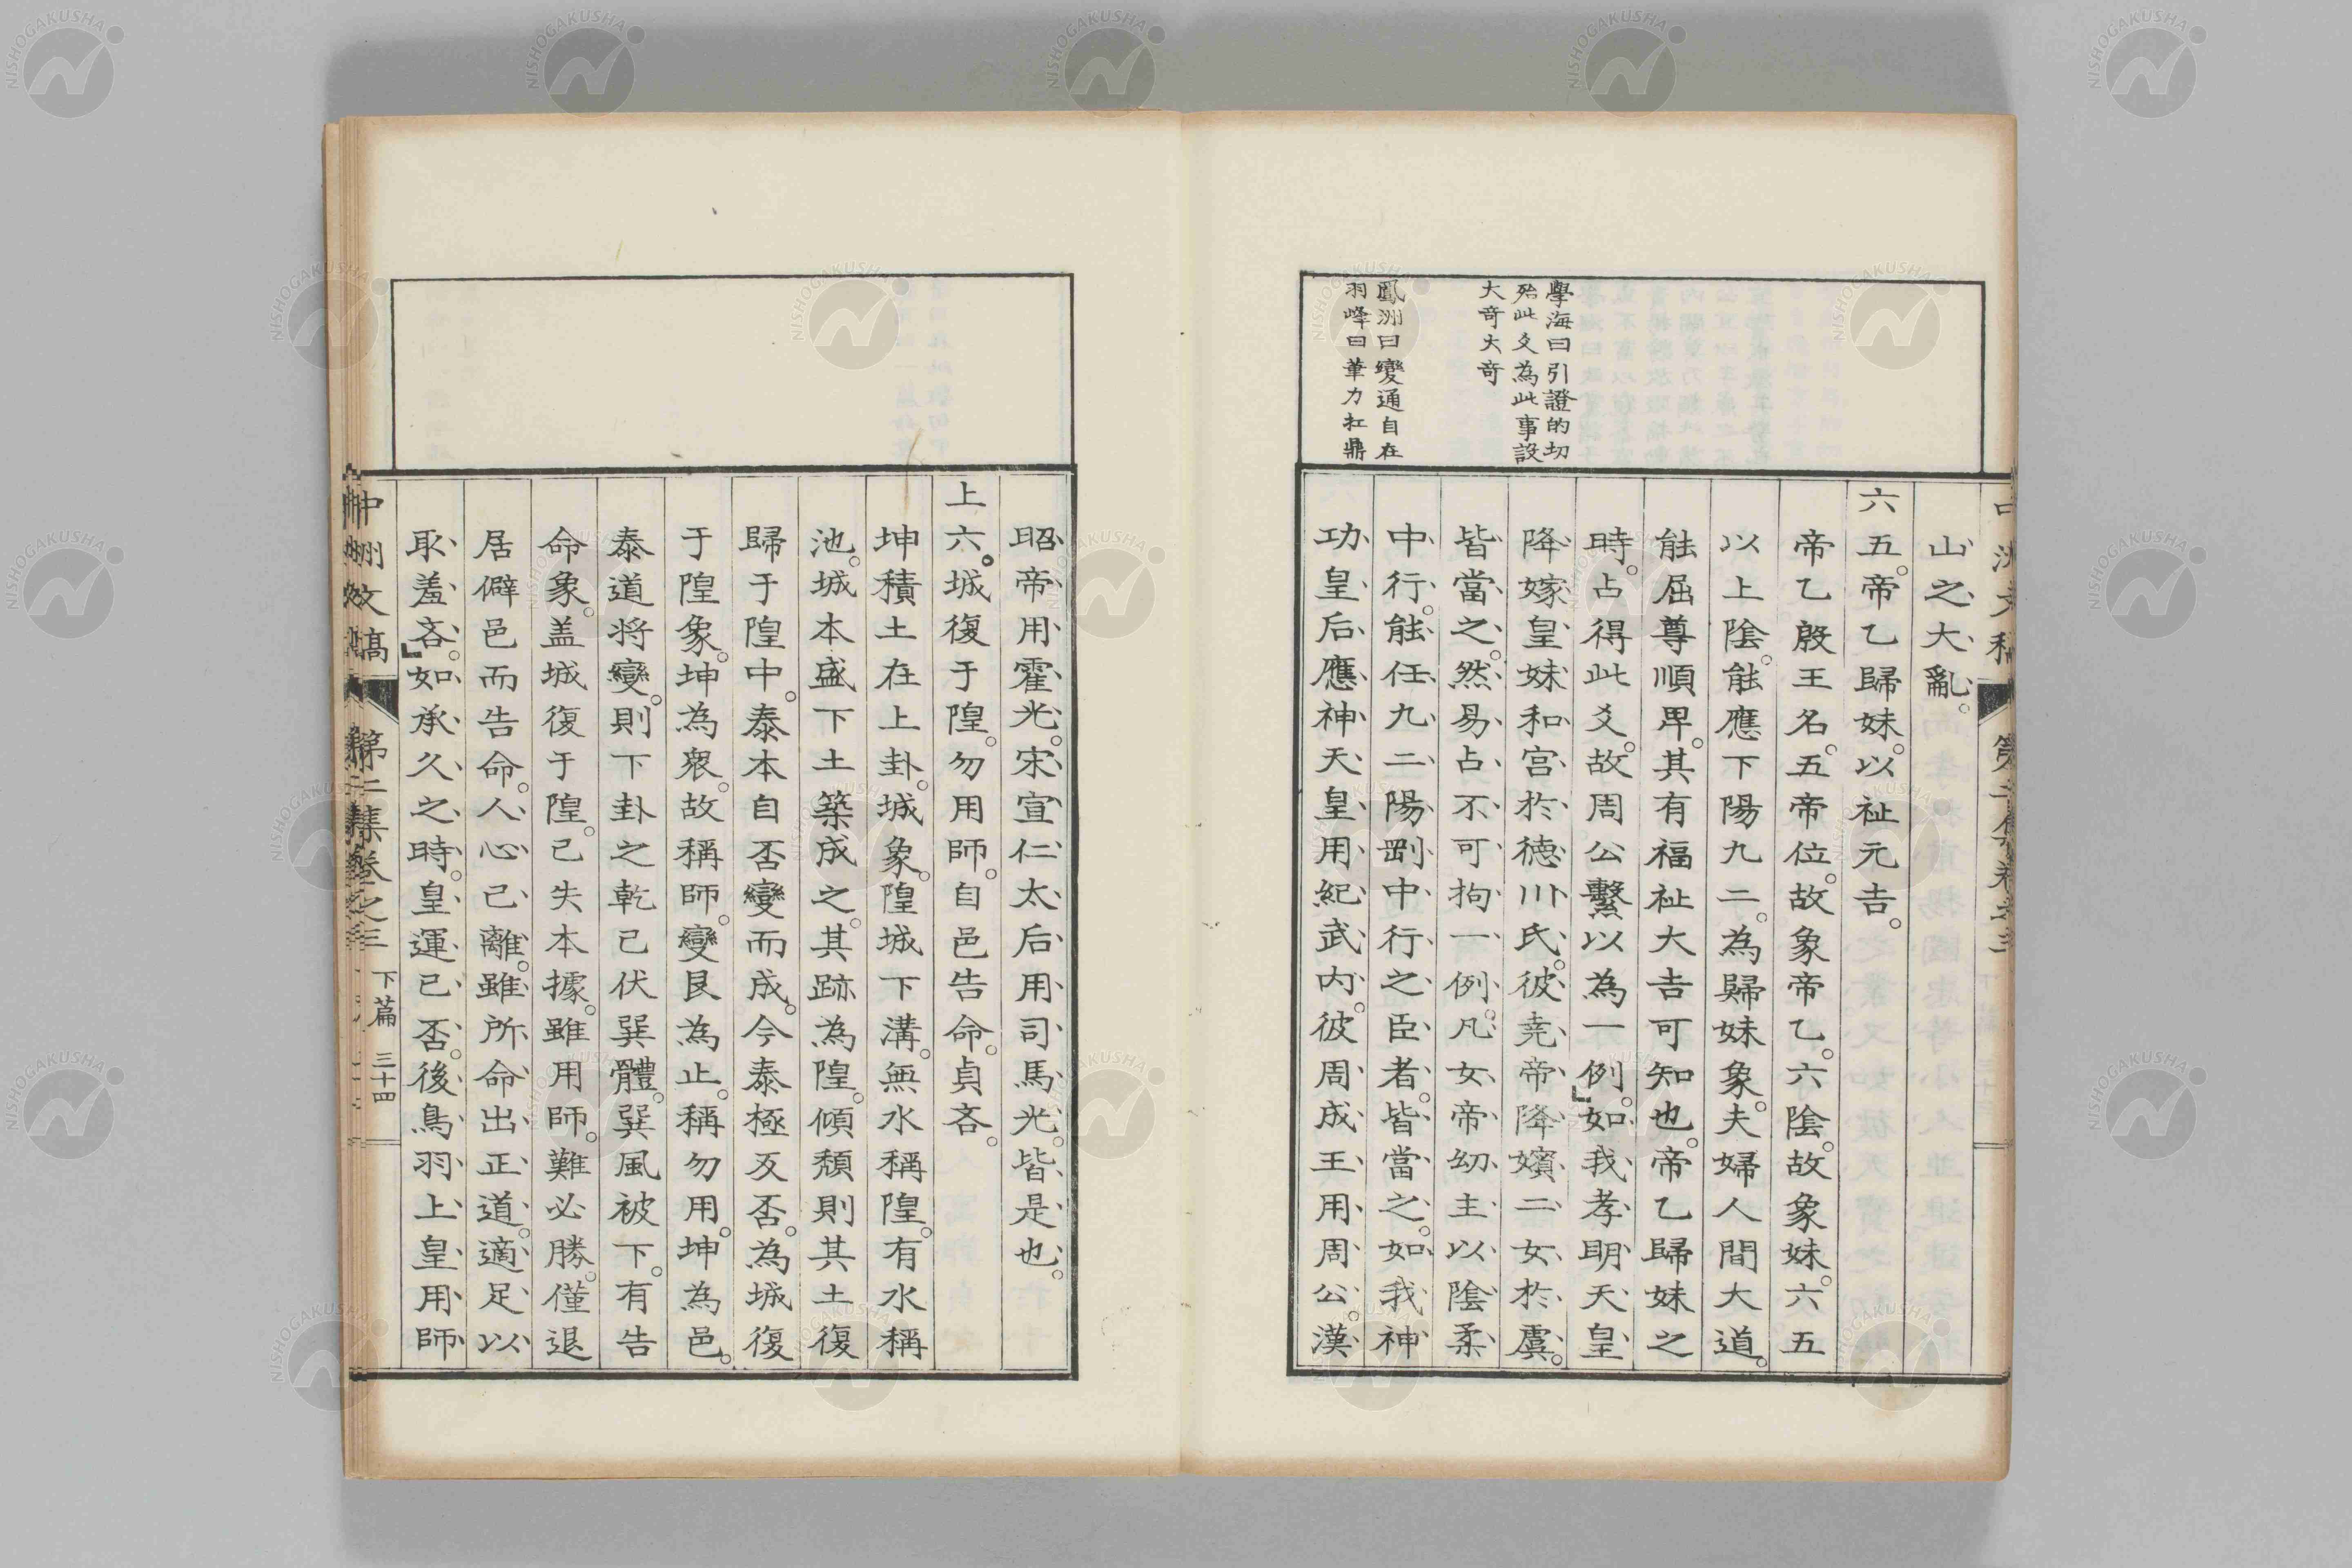 學海曰引證的切
殆此爻為此事設
大奇大奇
鳳洲曰變通自在
羽峰曰筆力扛鼎
山之大亂。
六五。帝乙歸妹。以祉元吉。
帝乙殷王名。五帝位。故象帝乙。六陰。故象妹。六五
以上陰。能應下陽九二。為歸妹象。夫婦人間大道。
能屈尊順卑。其有福祉大吉可知也。帝乙歸妹之
時。占得此爻。故周公繫以為一例。』如我孝明天皇
降嫁皇妹和宮於德川氏。彼堯帝降嬪二女於虞。
皆當之。然易占不可拘一例。凡女帝幼主以陰柔
中行。能任九二陽剛中行之臣者。皆當之。如我神
功皇后應神天皇用紀武內。彼周成王用周公。漢
昭帝用霍光。宋宣仁太后用司馬光。皆是也。
上六。城復于隍。勿用師。自邑告命。貞吝。
坤積土在上卦。城象。隍城下溝。無水稱隍。有水稱
池。城本盛下土築成之。其跡為隍。傾頹則其土復
歸于隍中。泰本自否變而成。今泰極反否。為城復
于隍象。坤為眾。故稱師。變艮為止。稱勿用。坤為邑。
泰道將變。則下卦之乾已伏巽體。巽風被下。有告
命象。蓋城復于隍。已失本據。雖用師。難必勝。僅退
居僻邑而告命。人心已離。雖所命出正道。適足以
取羞吝。』如承久之時。皇運已否。後鳥羽上皇用師
中洲文稿 第二集卷之三 下篇 三十四